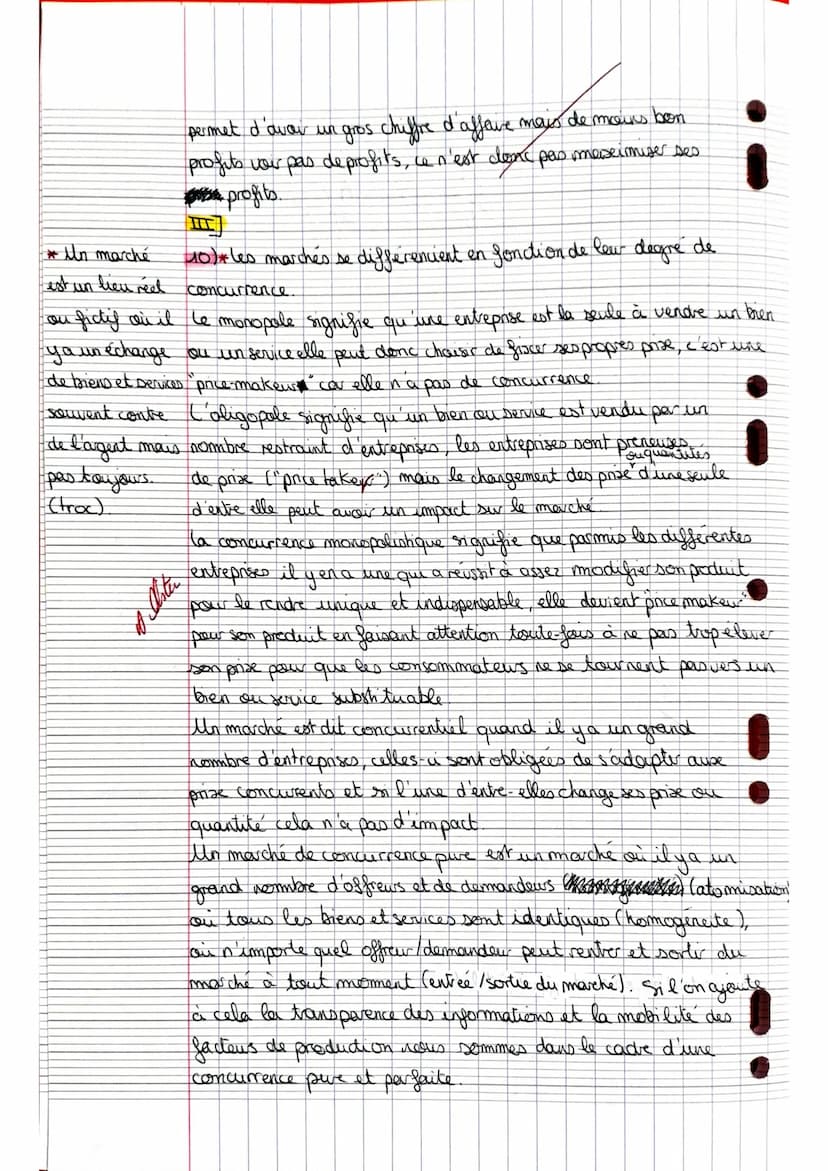 permet d'avoir un gros chiffre d'affaire mais de moins bon
profits voir pas de profits, ce n'est donc pas maximiser ses
profits.
III]
10)* Les marchés se différencient en fonction de leur degré de
concurrence.
Le monopole signifie qu'une entreprise est la seule à vendre un bien
ou un service elle peut donc choisir de fixer ses propres prix, c'est une
"price-makeur" car elle n'a pas de concurrence.
L'oligopole signifie qu'un bien ou service est vendu par un
nombre restraint d'entreprises, les entreprises sont preneuses
de prix ("price taker") mais le changement des prix ou quantités d'une seule
d'entre elle peut avoir un impact sur le marché.
La concurrence monopolistique signifie que parmis les différentes
entreprises il y en a une qui a réussit à assez modifier son produit
pour le rendre unique et indispensable, elle devient "price makeur"
pour son produit en faisant attention toute-fois à ne pas trop élever
son prix pour que les consommateurs ne se tournent pas vers un
bien ou service substituable.
Un marché est dit concurrentiel quand il y a un grand
nombre d'entreprises, celles-ci sont obligées de s'adapter aux
prix concurents et si l'une d'entre-elles change ses prix ou
quantité cela n'a pas d'impact.
Un marché de concurrence pure est un marché où il y a un
grand nombre d'offreurs et de demandeurs (atomisation)
où tous les biens et services sont identiques (homogénéité),
où n'importe quel offreur/demandeur peut rentrer et sortir du
marché à tout moment (entrée/sortie du marché). Si l'on ajoute
à cela la transparence des informations et la mobilité des
facteurs de production nous sommes dans le cadre d'une
concurrence pure et parfaite.
* Un marché
est un lieu réel
ou fictif où il
y a un échange
de biens et services
souvent contre
de l'argent mais
pas toujours.
(troc)